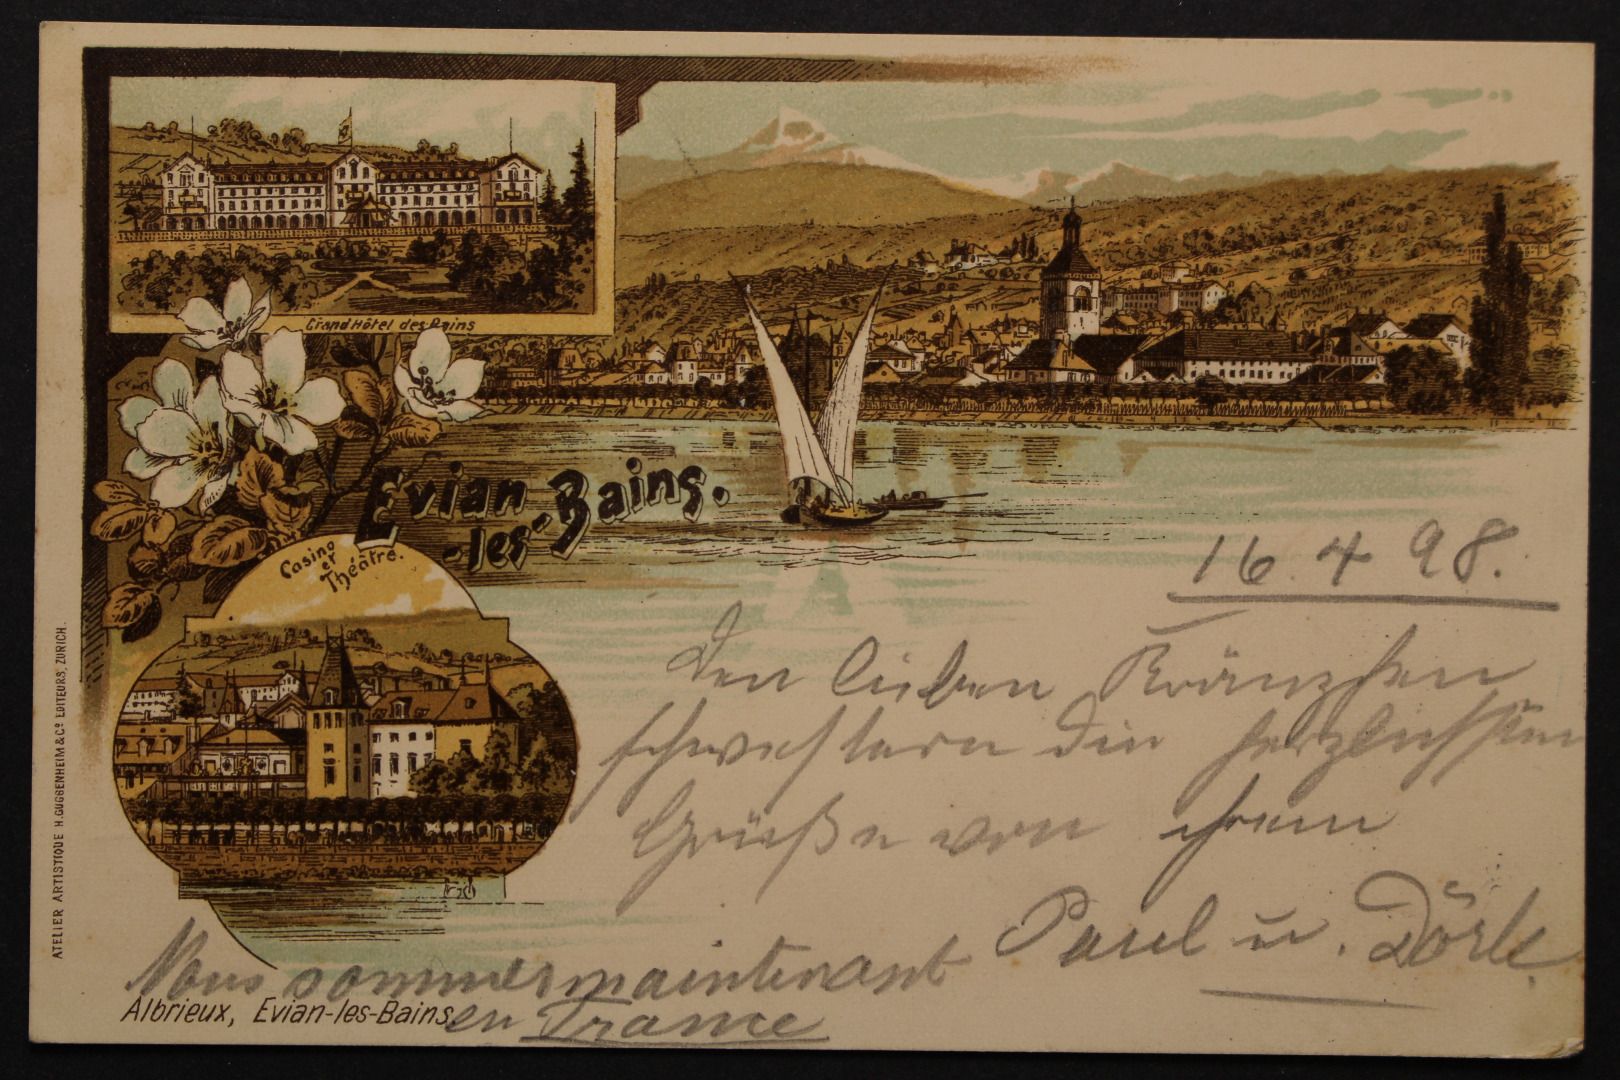 Grand Hôtel des Bains
Evian
-les-Bains.
Casino
et
Théâtre.
16. 4 98.
Den lieben Kränzchen
schwestern die herzlichsten
Grüße von ihrem
Paul u. Dörle.
Nous sommes maintenant
en France
Albrieux, Evian-les-Bains
ATELIER ARTISTIQUE H. GUGGENHEIM & Cº EDITEURS, ZÜRICH.